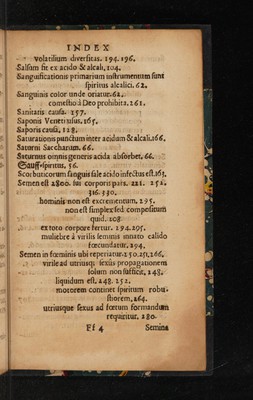 INDEX
volatilium diversitas. 194. 196.
Salsum fit ex acido & alcali, 104.
Sanguificationis primarium instrumentum sunt
spiritus alcalici. 62.
Sanguinis color unde oriatur. 62.
comestio à Deo prohibita. 261.
Sanitatis causa. 157.
Saponis Veneti usus. 165.
Saporis causa, 128.
Saturationis punctum inter acidum & alcali. 166.
Saturni Saccharum. 66.
Saturnus omnis generis acida absorbet, 66.
Sauff-spiritus, 56.
Scorbuticorum sanguis sale acido infectus est. 163.
Semen est
hominis non est excrementum, 295.
non est simplex sed compositum
quid. 208
ex toto corpore fertur. 194. 205.
muliebre à virilis semmis innato calido
fœcundatur, 294.
Semen in fœminis ubi reperiatur. 250. 251, 266.
virile ad utriusq; sexus propagationem
solum non sufficit, 248.
liquidum est. 248. 252.
motorem continet spiritum robu-
stiorem, 264.
utriusque sexus ad fœtum formandum
requiritur, 280.
Ff 4 Semina